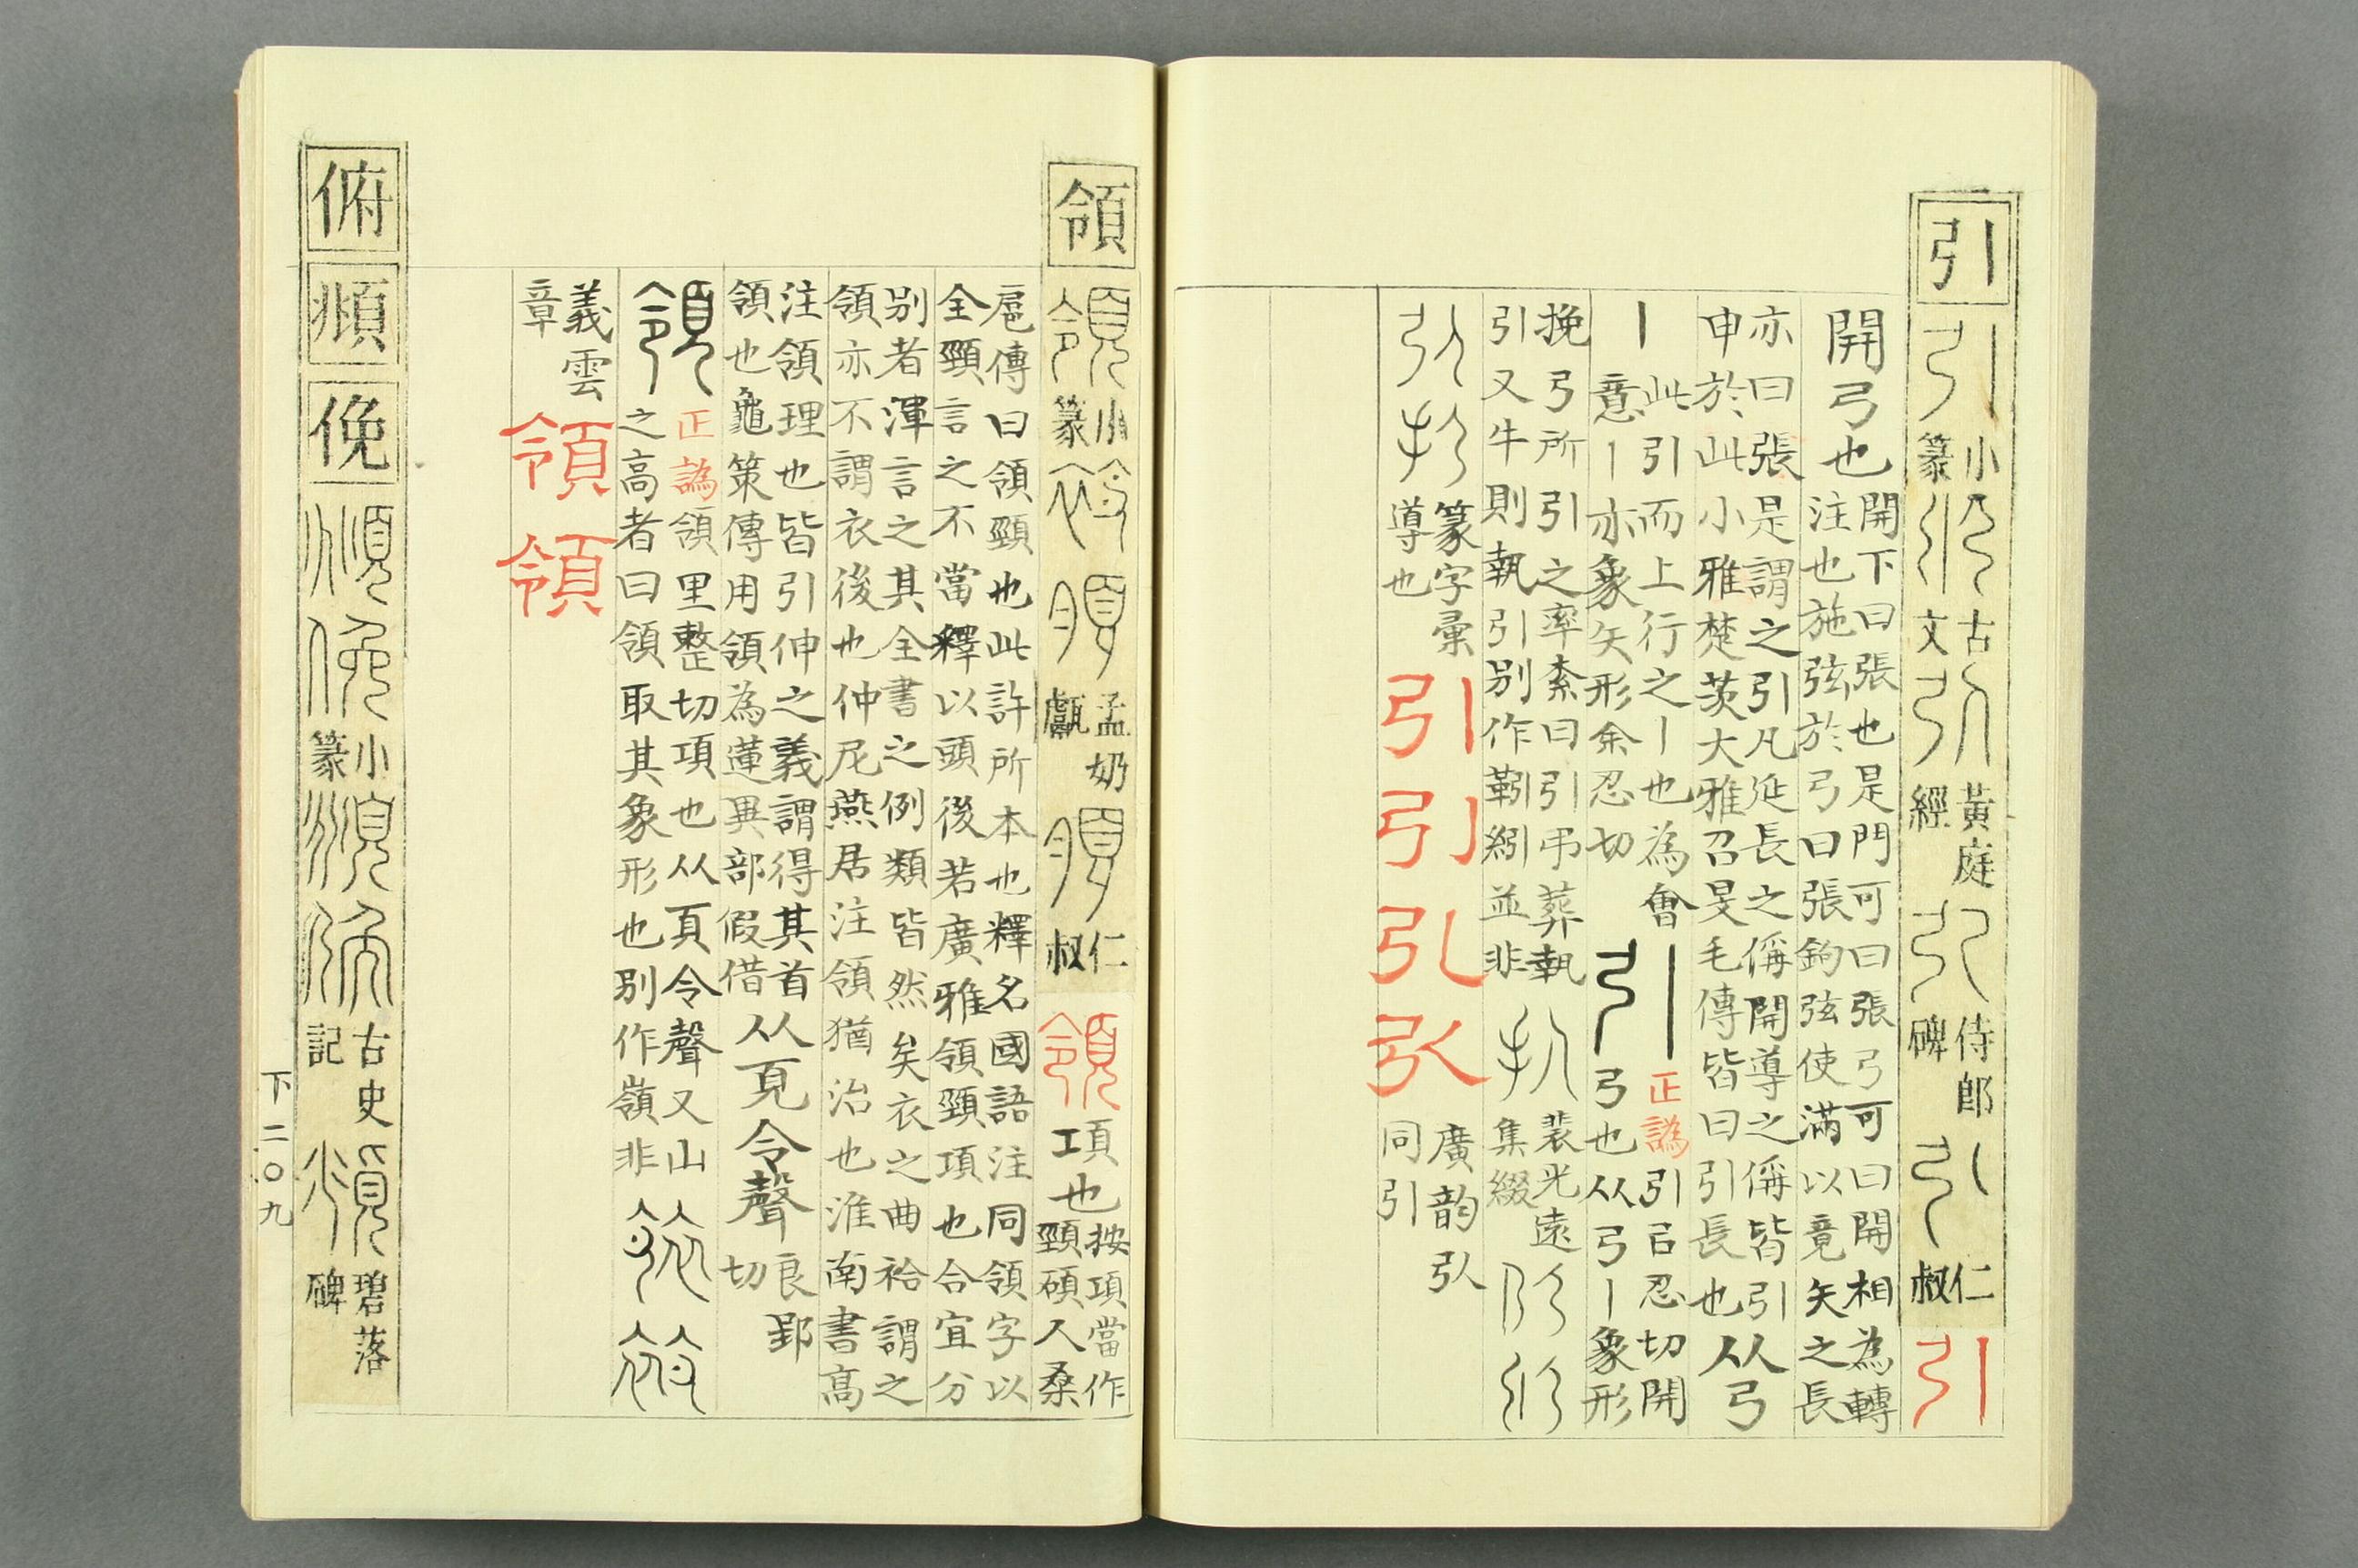 引
引 小篆 古文 引 黃庭經 侍郎碑 仁叔 引
開弓也
開下曰張也是門可曰張弓可曰開相為轉
注也施弦於弓曰張鉤弦使滿以竟矢之長
亦曰張是謂之引凡延長之偁開導之偁皆引
申於此小雅楚茨大雅召旻毛傳皆曰引長也
从弓
丨
此引而上行之丨也為會
意丨亦象矢形余忍切
引
正譌引㠯忍切開
弓也从弓丨象形
挽弓所引之率紊曰引引弔葬執
引又牛則執引別作靷紖並非
裴光遠
集綴
篆字彙
導也
引引弘㧈
廣韵㧈
同引
領
領 小篆 孟奶甗 仁叔 領
項也
按項當作
頸碩人桑
扈傳曰領頸也此許所本也釋名國語注同領字以
全頸言之不當釋以頭後若廣雅領頸項也合宜分
別者渾言之其全書之例類皆然矣衣之曲袷謂之
領亦不謂衣後也仲尼燕居注領猶治也淮南書高
注領理也皆引伸之義謂得其首
領也龜策傳用領為蓮異部假借
从頁令聲
良郢
切
領
正譌領里整切項也从頁令聲又山
之高者曰領取其象形也別作嶺非
義雲
章
領領
俯
頫
俛
頫 俛 小篆 古史記 碧落碑
下二〇九